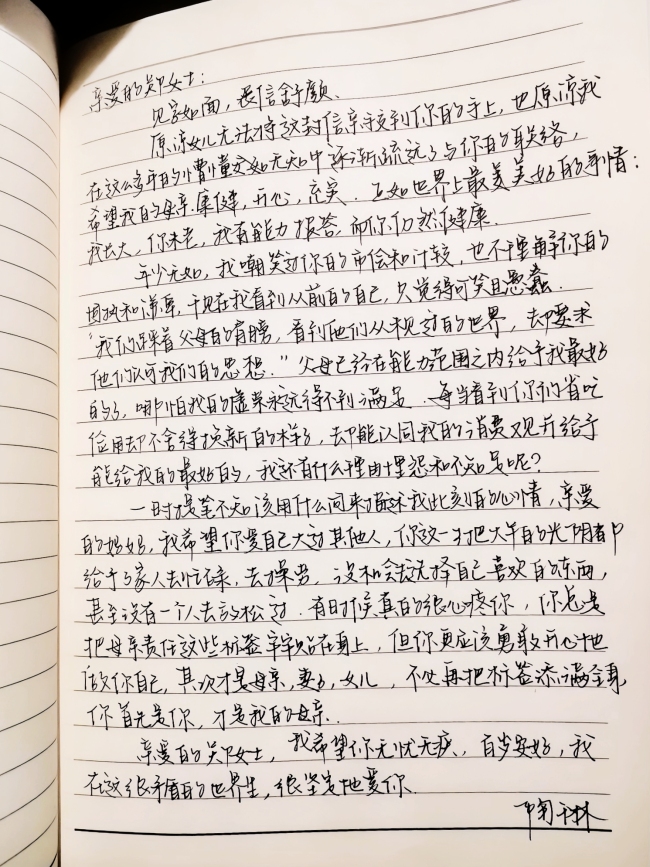 亲爱的郑女士：
见字如面，展信舒颜．
原谅女儿无法将这封信亲手交到你的手上，也原谅我
在这么多年的懵懂无知中逐渐疏远了与你的联络，
希望我的母亲．康健，开心，充实．正如世界上最美好的事情：
我长大，你未老，我有能力报答，而你仍然健康．
年少无知，我嘲笑过你的市侩和计较，也不理解你的
固执和，于现在我看到从前的自己，只觉得可笑且愚蠢．
“我们踩着父母的肩膀，看到他们从未见过的世界，却要求
他们认可我们的思想．”父母已经在能力范围之内给予我最好
的了，哪怕我的虚荣永远得不到满足．每当看到你们省吃
俭用却不舍得换新的样子，却能认同我的消费观并给予
能给我的最好的，我还有什么理由埋怨和不知足呢？
一时提笔不知该用什么词来描述我此刻的心情，亲爱
的妈妈，我希望你爱自己大过其他人，你这一生把大半的光阴都
给予了家人去忙碌，去操劳，没机会去选择自己喜欢的东西，
甚至没有一个人去放松过．有时候真的很心疼你，你总是
把母亲责任这些标签牢牢贴在身上，但你更应该勇敢开心地
做你自己，其次才是母亲，妻子，女儿，不必再把标签添满全身
你首先是你，才是我的母亲．
亲爱的郑女士，我希望你无忧无疾，百岁安好，我
在这很矛盾的世界里，很坚定地爱你．